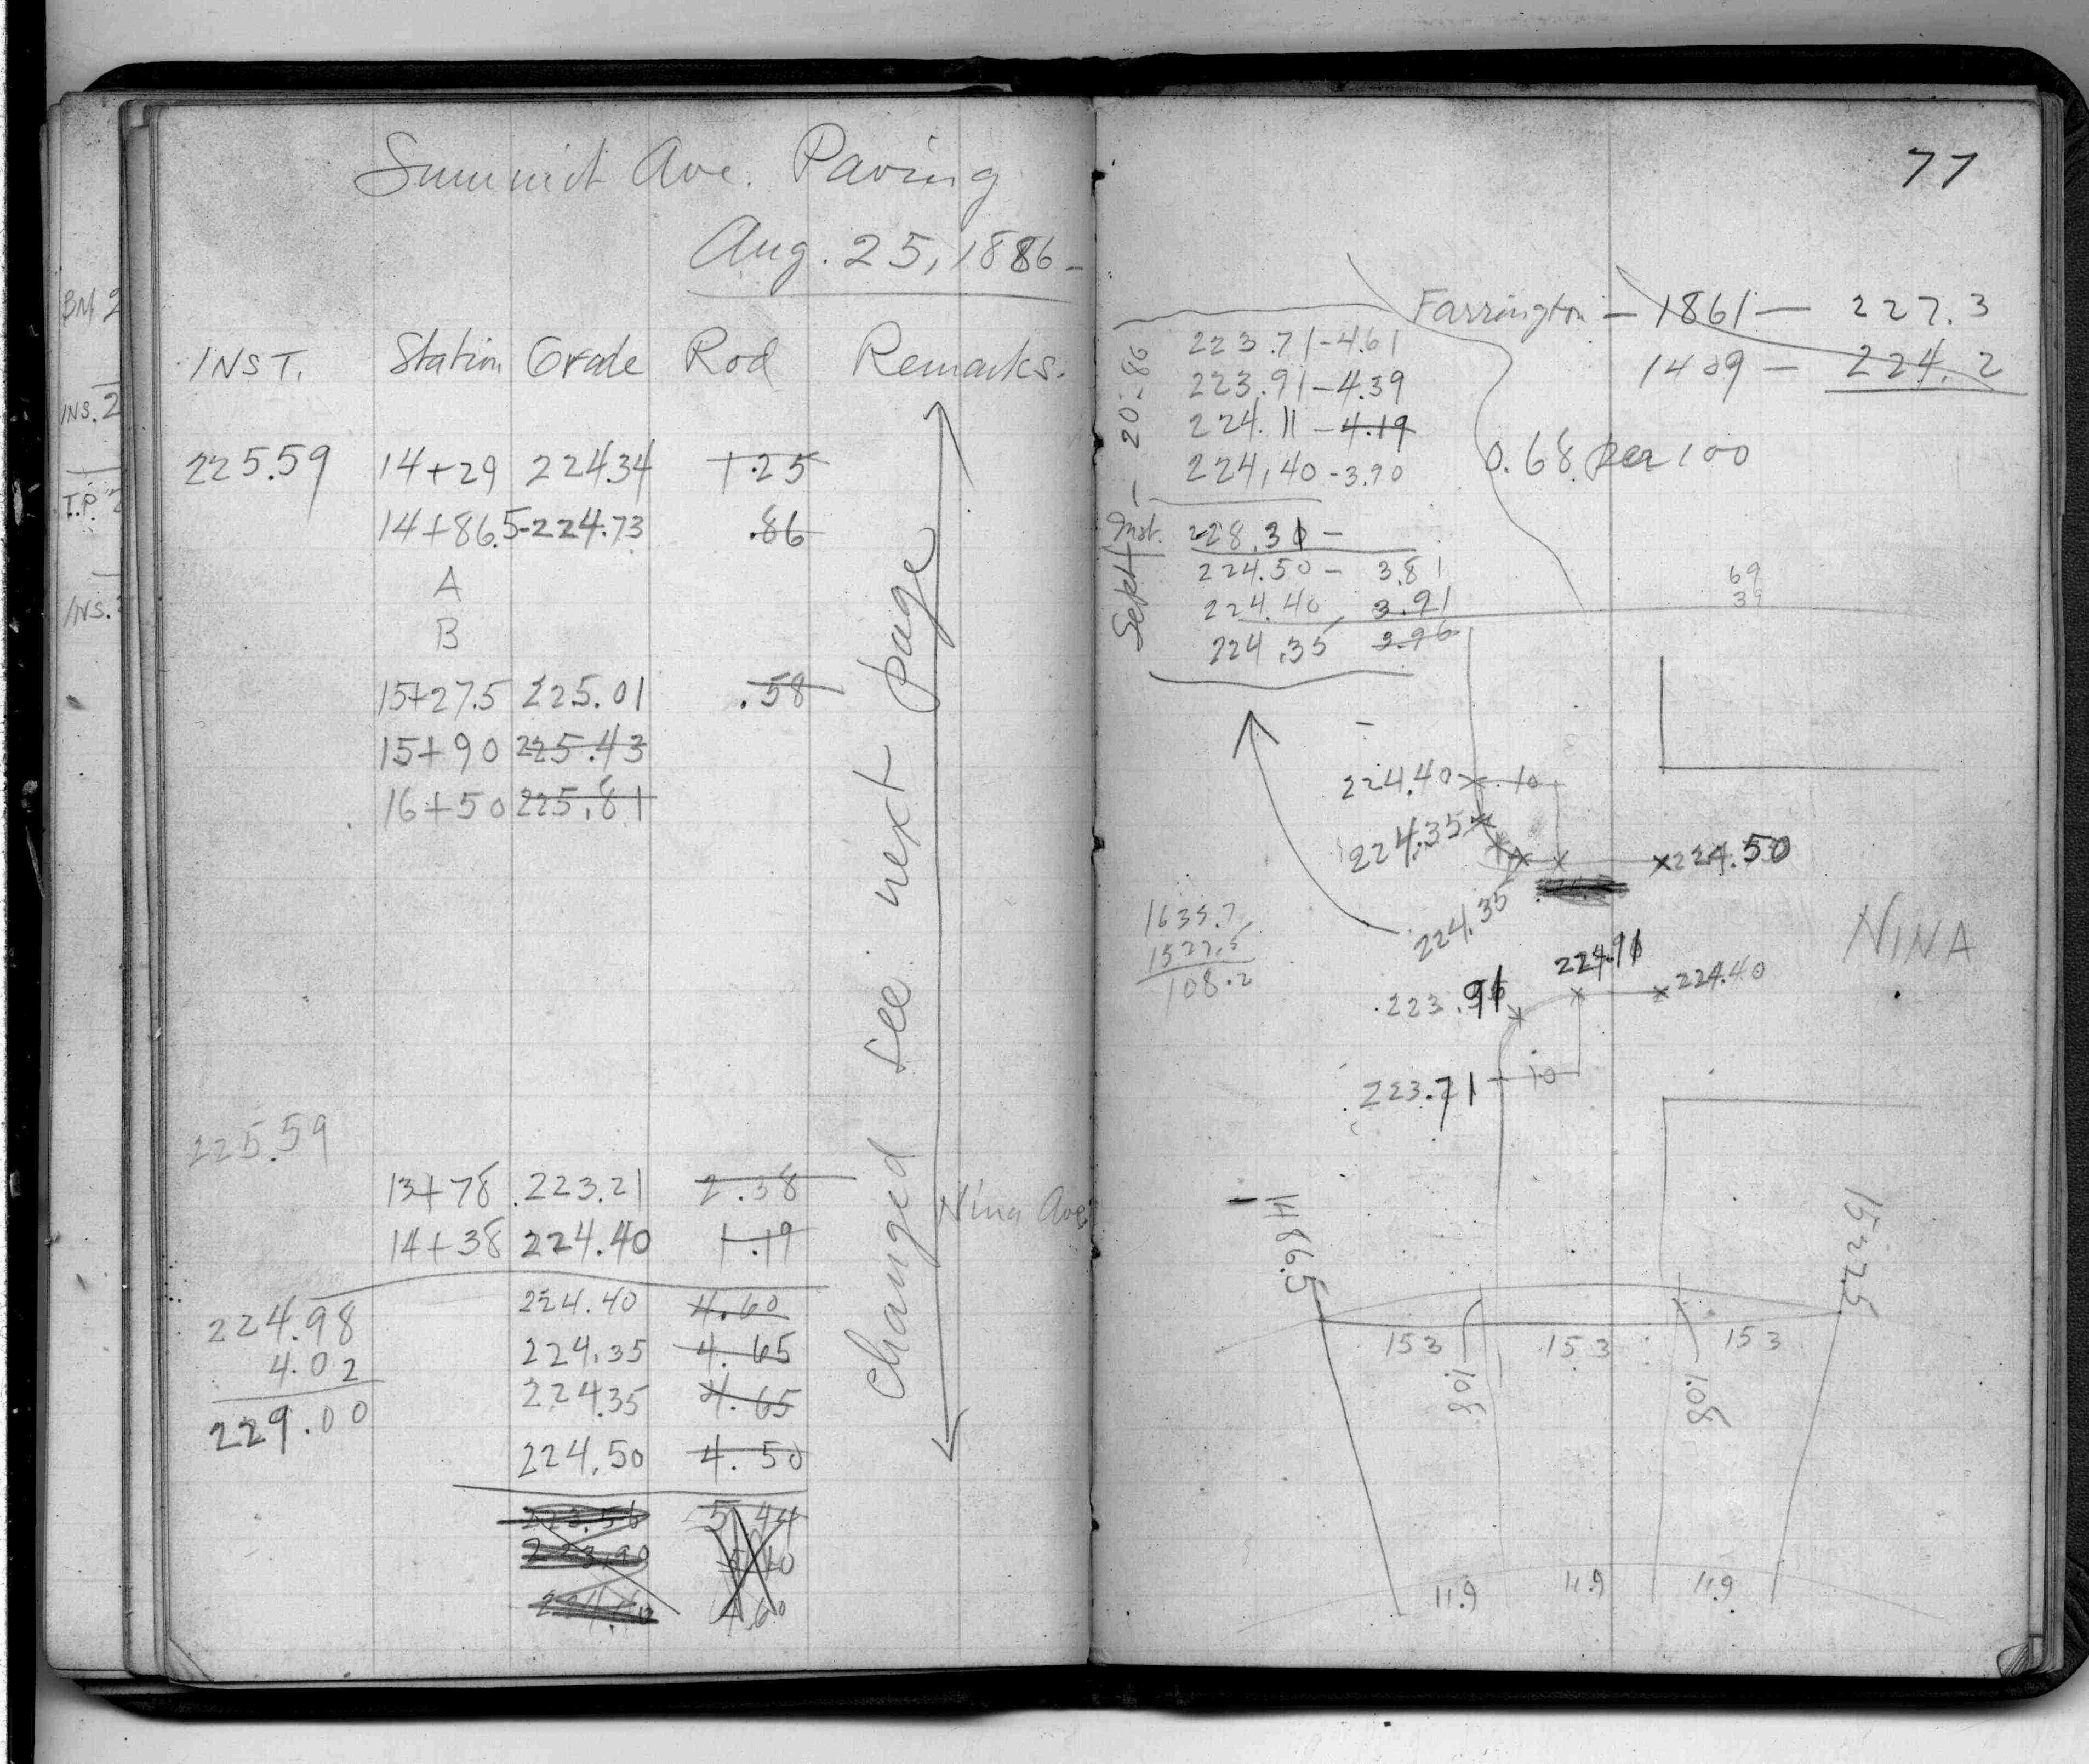 Summit Ave. Paving
Aug. 25, 1886 -
INST. Station Grade Rod Remarks.
225.59 14+29 224.34 1.25
14+86.5 - 224.73 .86
A
B
15+27.5 225.01 .58
15+90 225.43
16+50 225.81
changed see next page
225.59
13+78 223.21 2.38
14+38 224.40 1.19
Nina Ave.
224.40 4.60
224.98 224.35 4.65
4.02 224.35 4.65
229.00 224.50 4.50
5.44
4.60
BM 2
INS. 2
T.P. 2
INS.
77
Farrington - 1861 - 227.3
1409 - 224.2
0.68 per 100
Sept - 20 - 86
223.71 - 4.61
223.91 - 4.39
224.11 - 4.19
224.40 - 3.90
Inst. 228.31 -
224.50 - 3.81
224.40 3.91
224.35 3.96
69
39
224.40 10
224.35
224.50
224.35
1635.7
1527.5
108.2
NINA
224.40
223.91
223.71 10
1486.5
1527.5
15.3 15.3 15.3
10.8 10.8
11.9 11.9 11.9